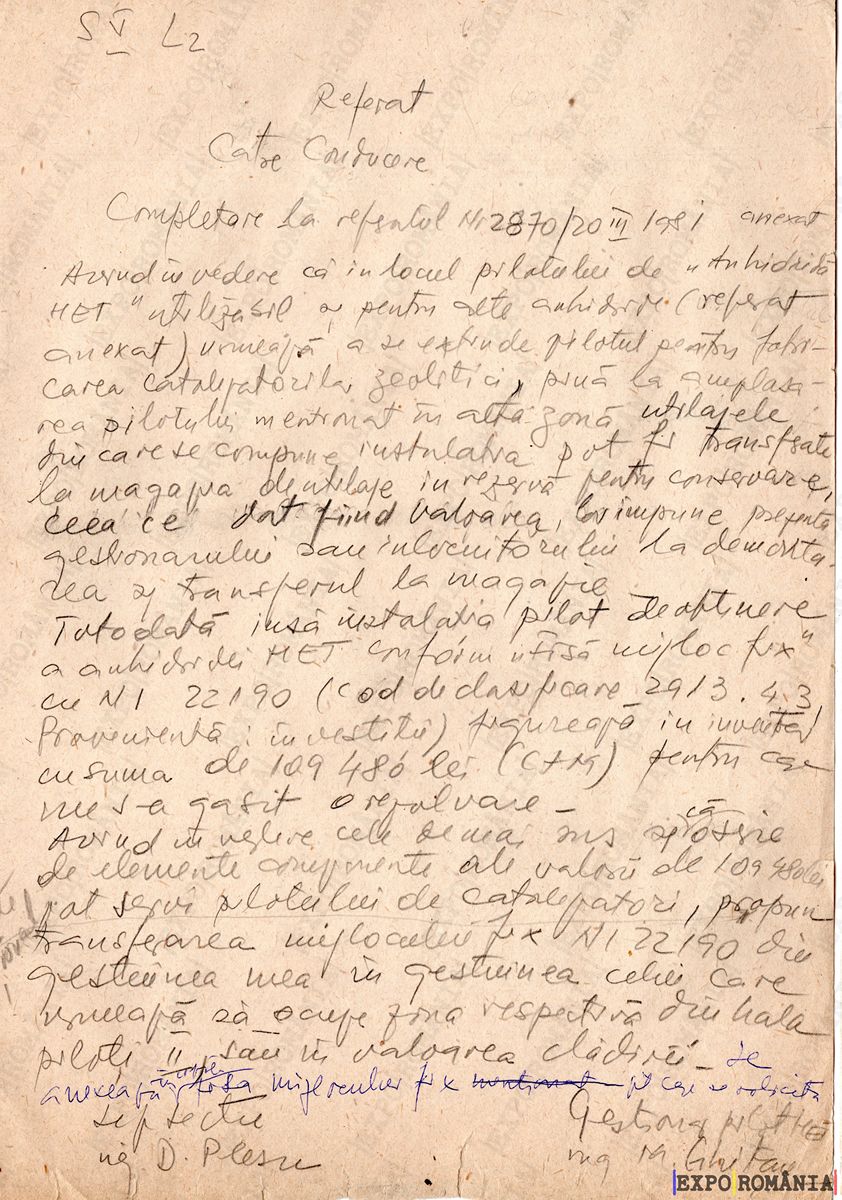 S V L2
Referat
Catre Conducere
Completare la referatul Nr 2870/20 III 1981 anexat
Avînd în vedere că in locul pilotului de "Anhidridă
HET" utilizabil și pentru alte anhidride (referat
anexat) urmează a se extinde pilotul pentru fabri-
carea catalizatorilor zeolitici, pînă la amplasa-
rea pilotului mentionat în altă zonă utilajele
din care se compune instalatia pot fi transferate
la magazia de utilaje in rezervă pentru conservare,
ceea ce dat fiind valoarea, lor impune prezenta
gestionarului sau inlocuitorului la demonta-
rea și transferul la magazie
Totodată insă instalatia pilot de obtinere
a anhidridei HET conform "fisă mijloc fix"
cu NI 22190 (Cod de clasificare 2913.4.3
Provenientă: investitii) figurează in inventar
cu suma de 109 486 lei (C+M) pentru care
nu s-a gasit o rezolvare -
Avînd in vedere cele de mai sus și că o serie
de elemente componente ale valorii de 109 486 lei
pot servi pilotului de catalizatori, propun
transferarea mijlocului fix NI 22190 din
gestiunea mea in gestiunea celui care
urmează să ocupe zona respectivă din hala
piloți II, sau in valoarea clădirii - se
anexează fisa mijlocului fix mentionat pt care se solicita
Sef sectie
ing D. Plesu
Gestionar pilot HET
ing
EXPO ROMÂNIA